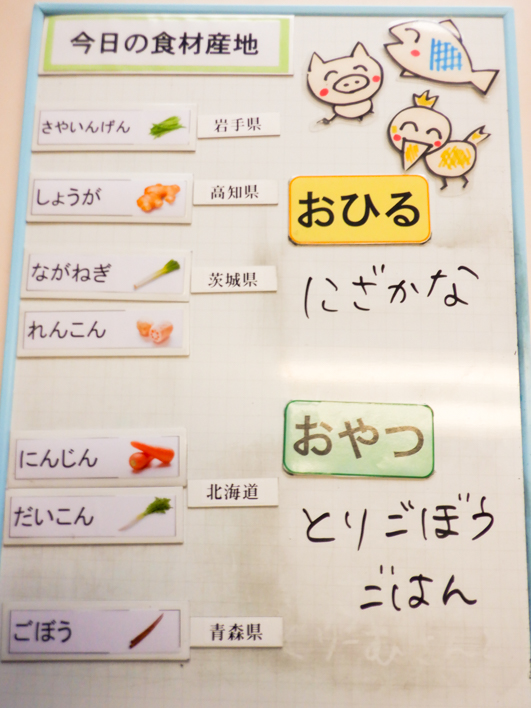 今日の食材産地
さやいんげん 岩手県
しょうが 高知県
ながねぎ 茨城県
れんこん
にんじん
北海道
だいこん
ごぼう 青森県
おひる
にざかな
おやつ
とりごぼう
ごはん